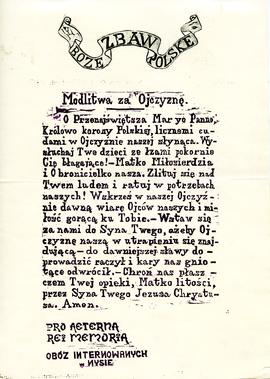 BOŻE ZBAW POLSKĘ
Modlitwa za Ojczyznę.
O Przenajświętsza Maryo Panno,
Królowo korony Polskiej, licznemi cu-
dami w Ojczyźnie naszej słynąca. Wy-
słuchaj Twe dzieci ze łzami pokornie
Cię błagające!—Matko Miłosierdzia
i Obronicielko nasza. Zlituj się nad
Twem ludem i ratuj w potrzebach
naszych! Wskrześ w naszej Ojczyź-
nie dawną wiarę Ojców naszych i mi-
łość gorącą ku Tobie.—Wstaw się
za nami do Syna Twego, ażeby Oj-
czyznę naszą w utrapieniu się znaj-
dującą—do dawniejszej sławy do-
prowadzić raczył i kary nas gnio-
tące odwrócił.—Chroń nas płasz-
czem Twej opieki, Matko litości,
przez Syna Twego Jezusa Chrystu-
sa. Amen.
PRO AETERNA
REI MEMORIA
OBÓZ INTERNOWANYCH
w NYSIE